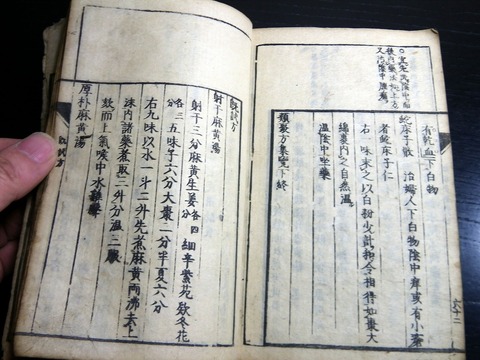 有乾血下白物
蛇床子散 治婦人下白物陰中痒或有小瘡
者蛇床子仁
右一味末之以白粉少許和令相得如棗大
綿裹內之自然溫
溫陰中坐藥
類聚方集覽下終
六十二
射干麻黃湯
射干三分麻黃生姜各四分細辛紫苑欵冬花
各三分五味子六分大棗二分半夏六分
右九味以水一斗二升先煮麻黃兩沸去上
沫內諸藥煮取三升分溫三服
欬而上氣喉中水雞聲
厚朴麻黃湯